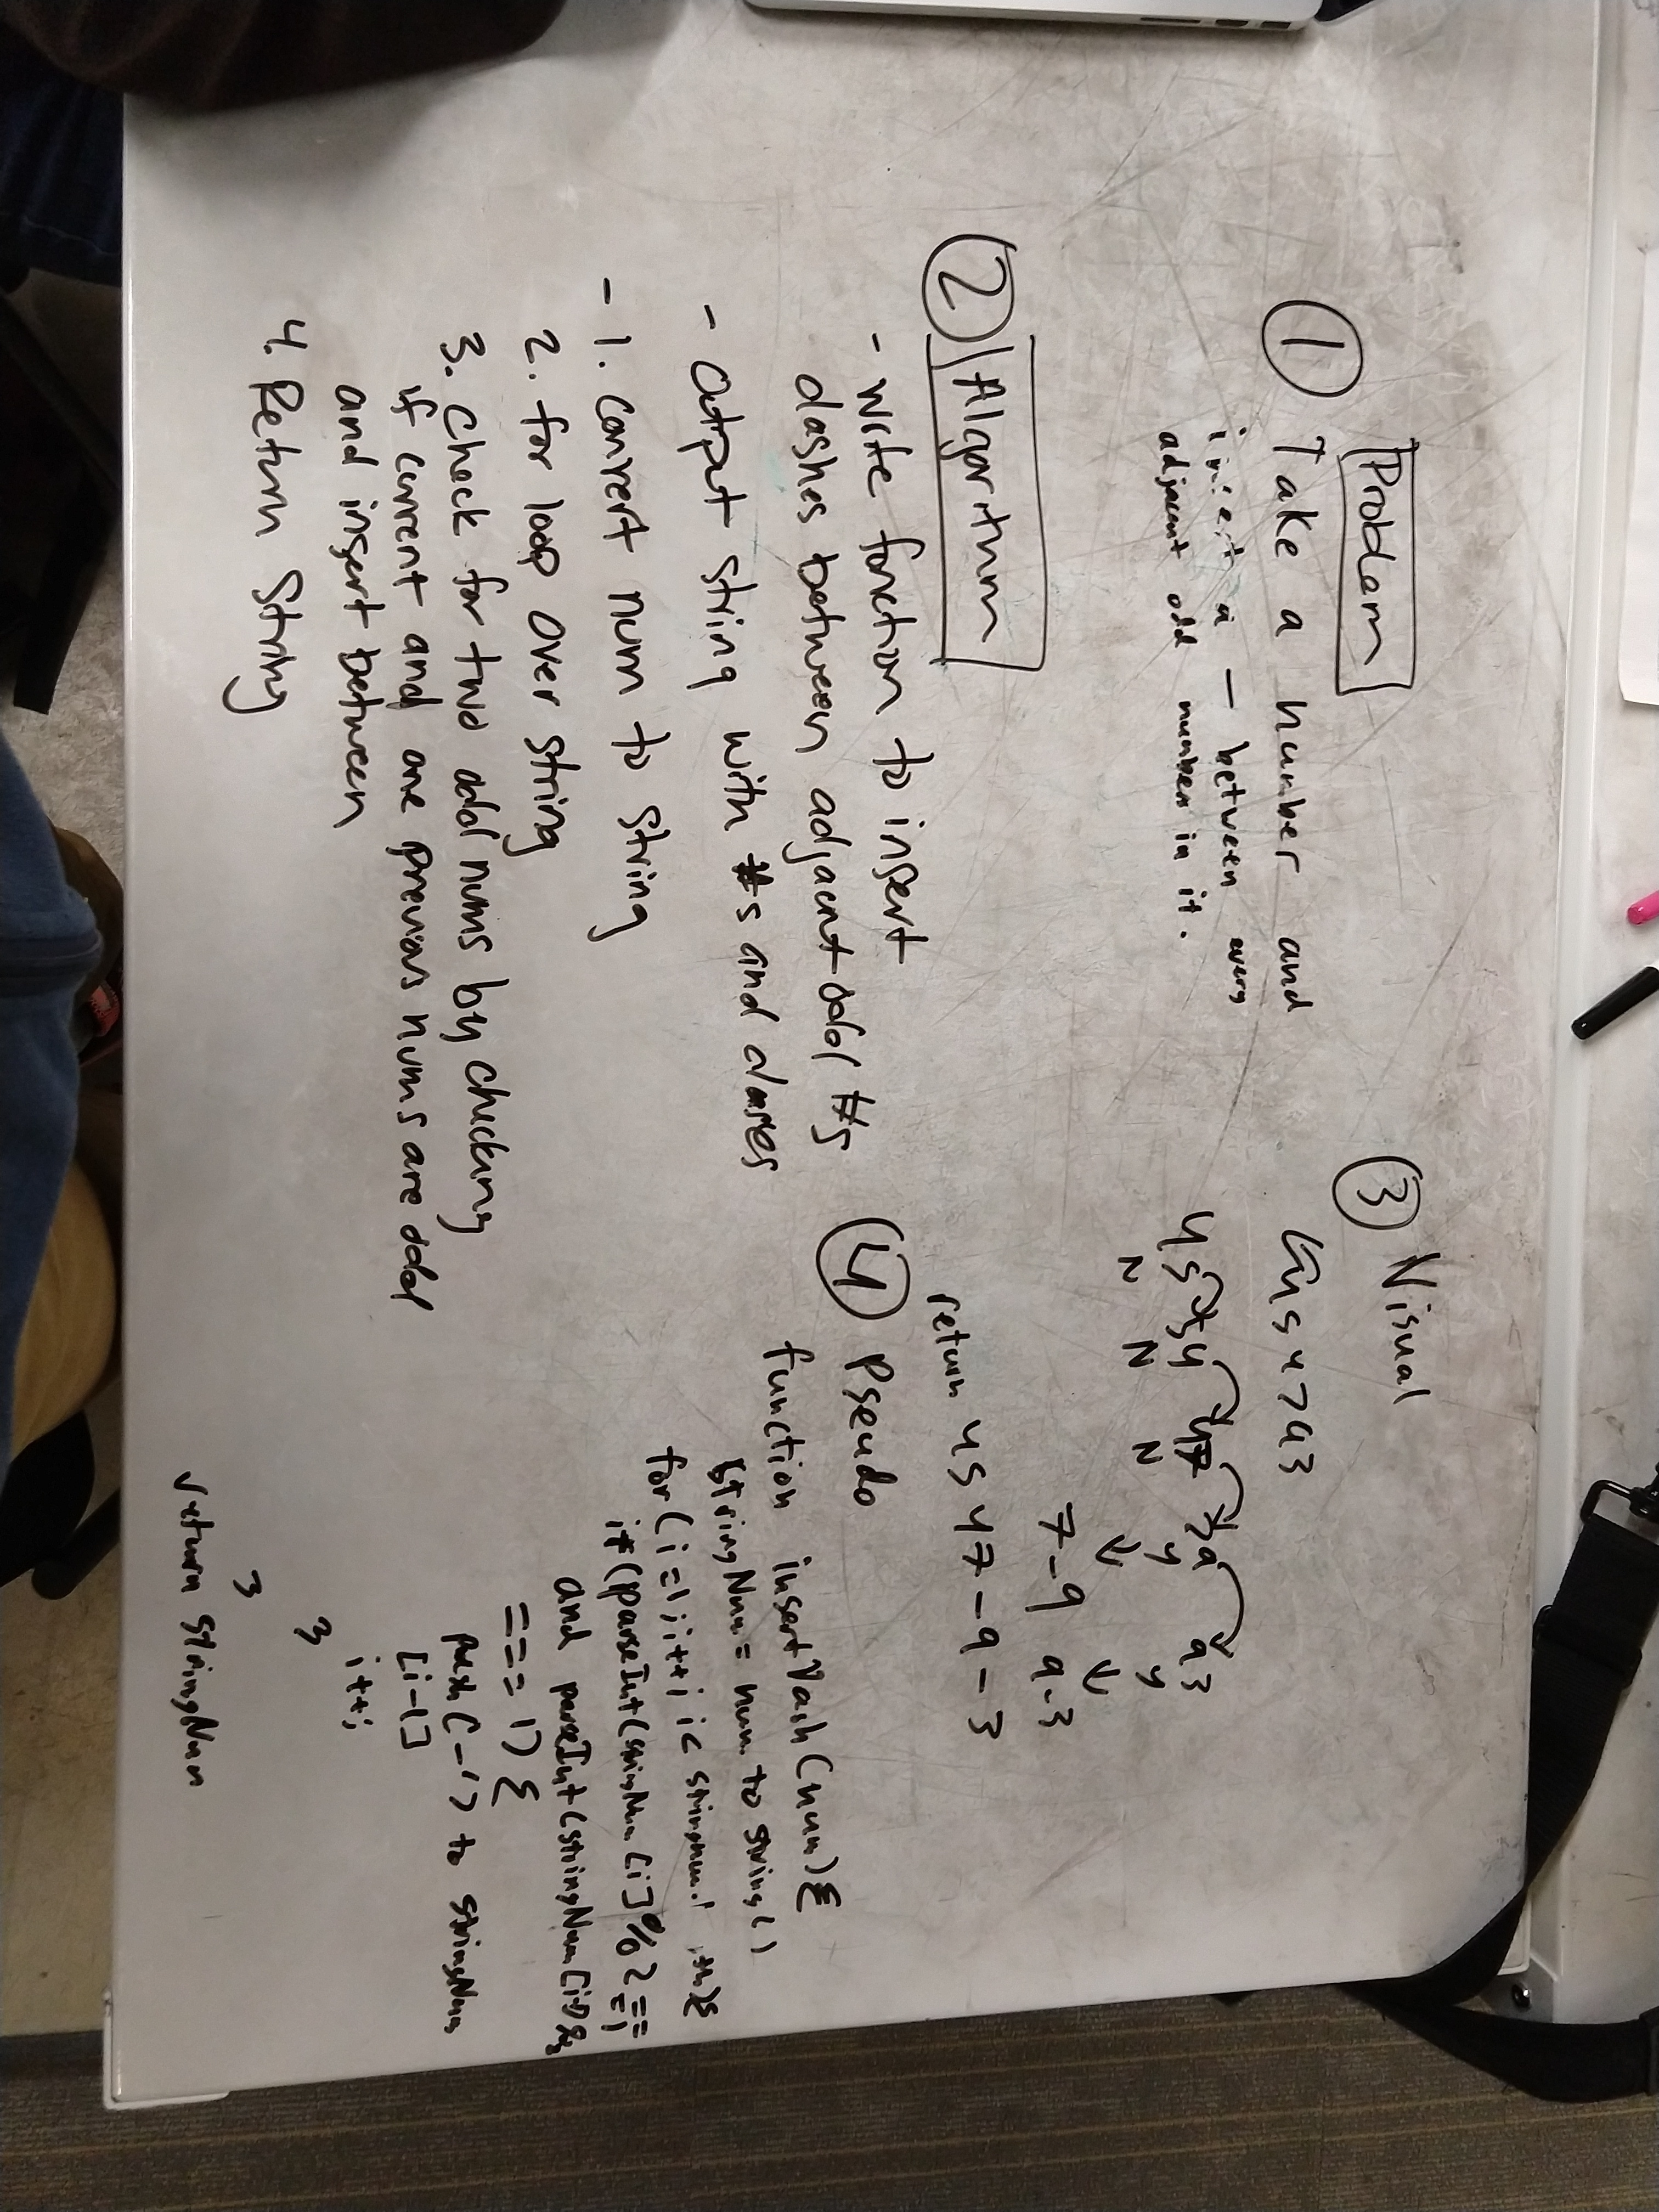 ① Problem
Take a number and
insert a – between every
adjacent odd number in it.
② Algorithm
- Write function to insert
dashes between adjacent odd #s
- Output string with #s and dashes
- 1. Convert num to string
2. for loop over string
3. Check for two odd nums by checking
if current and one previous nums are odd
and insert between
4. Return String
③ Visual
454793
45 54 47 79 93
N N N y y
↓ ↓
7-9 9-3
return 4547-9-3
④ Pseudo
function insertDash(num){
stringNum = num to string()
for(i=1; i < stringNum.
if(parseInt(stringNum[i]%2===1
and parseInt(stringNum[i-1]%2
===1){
push('-') to stringNum
[i-1]
i++;
}
}
return stringNum